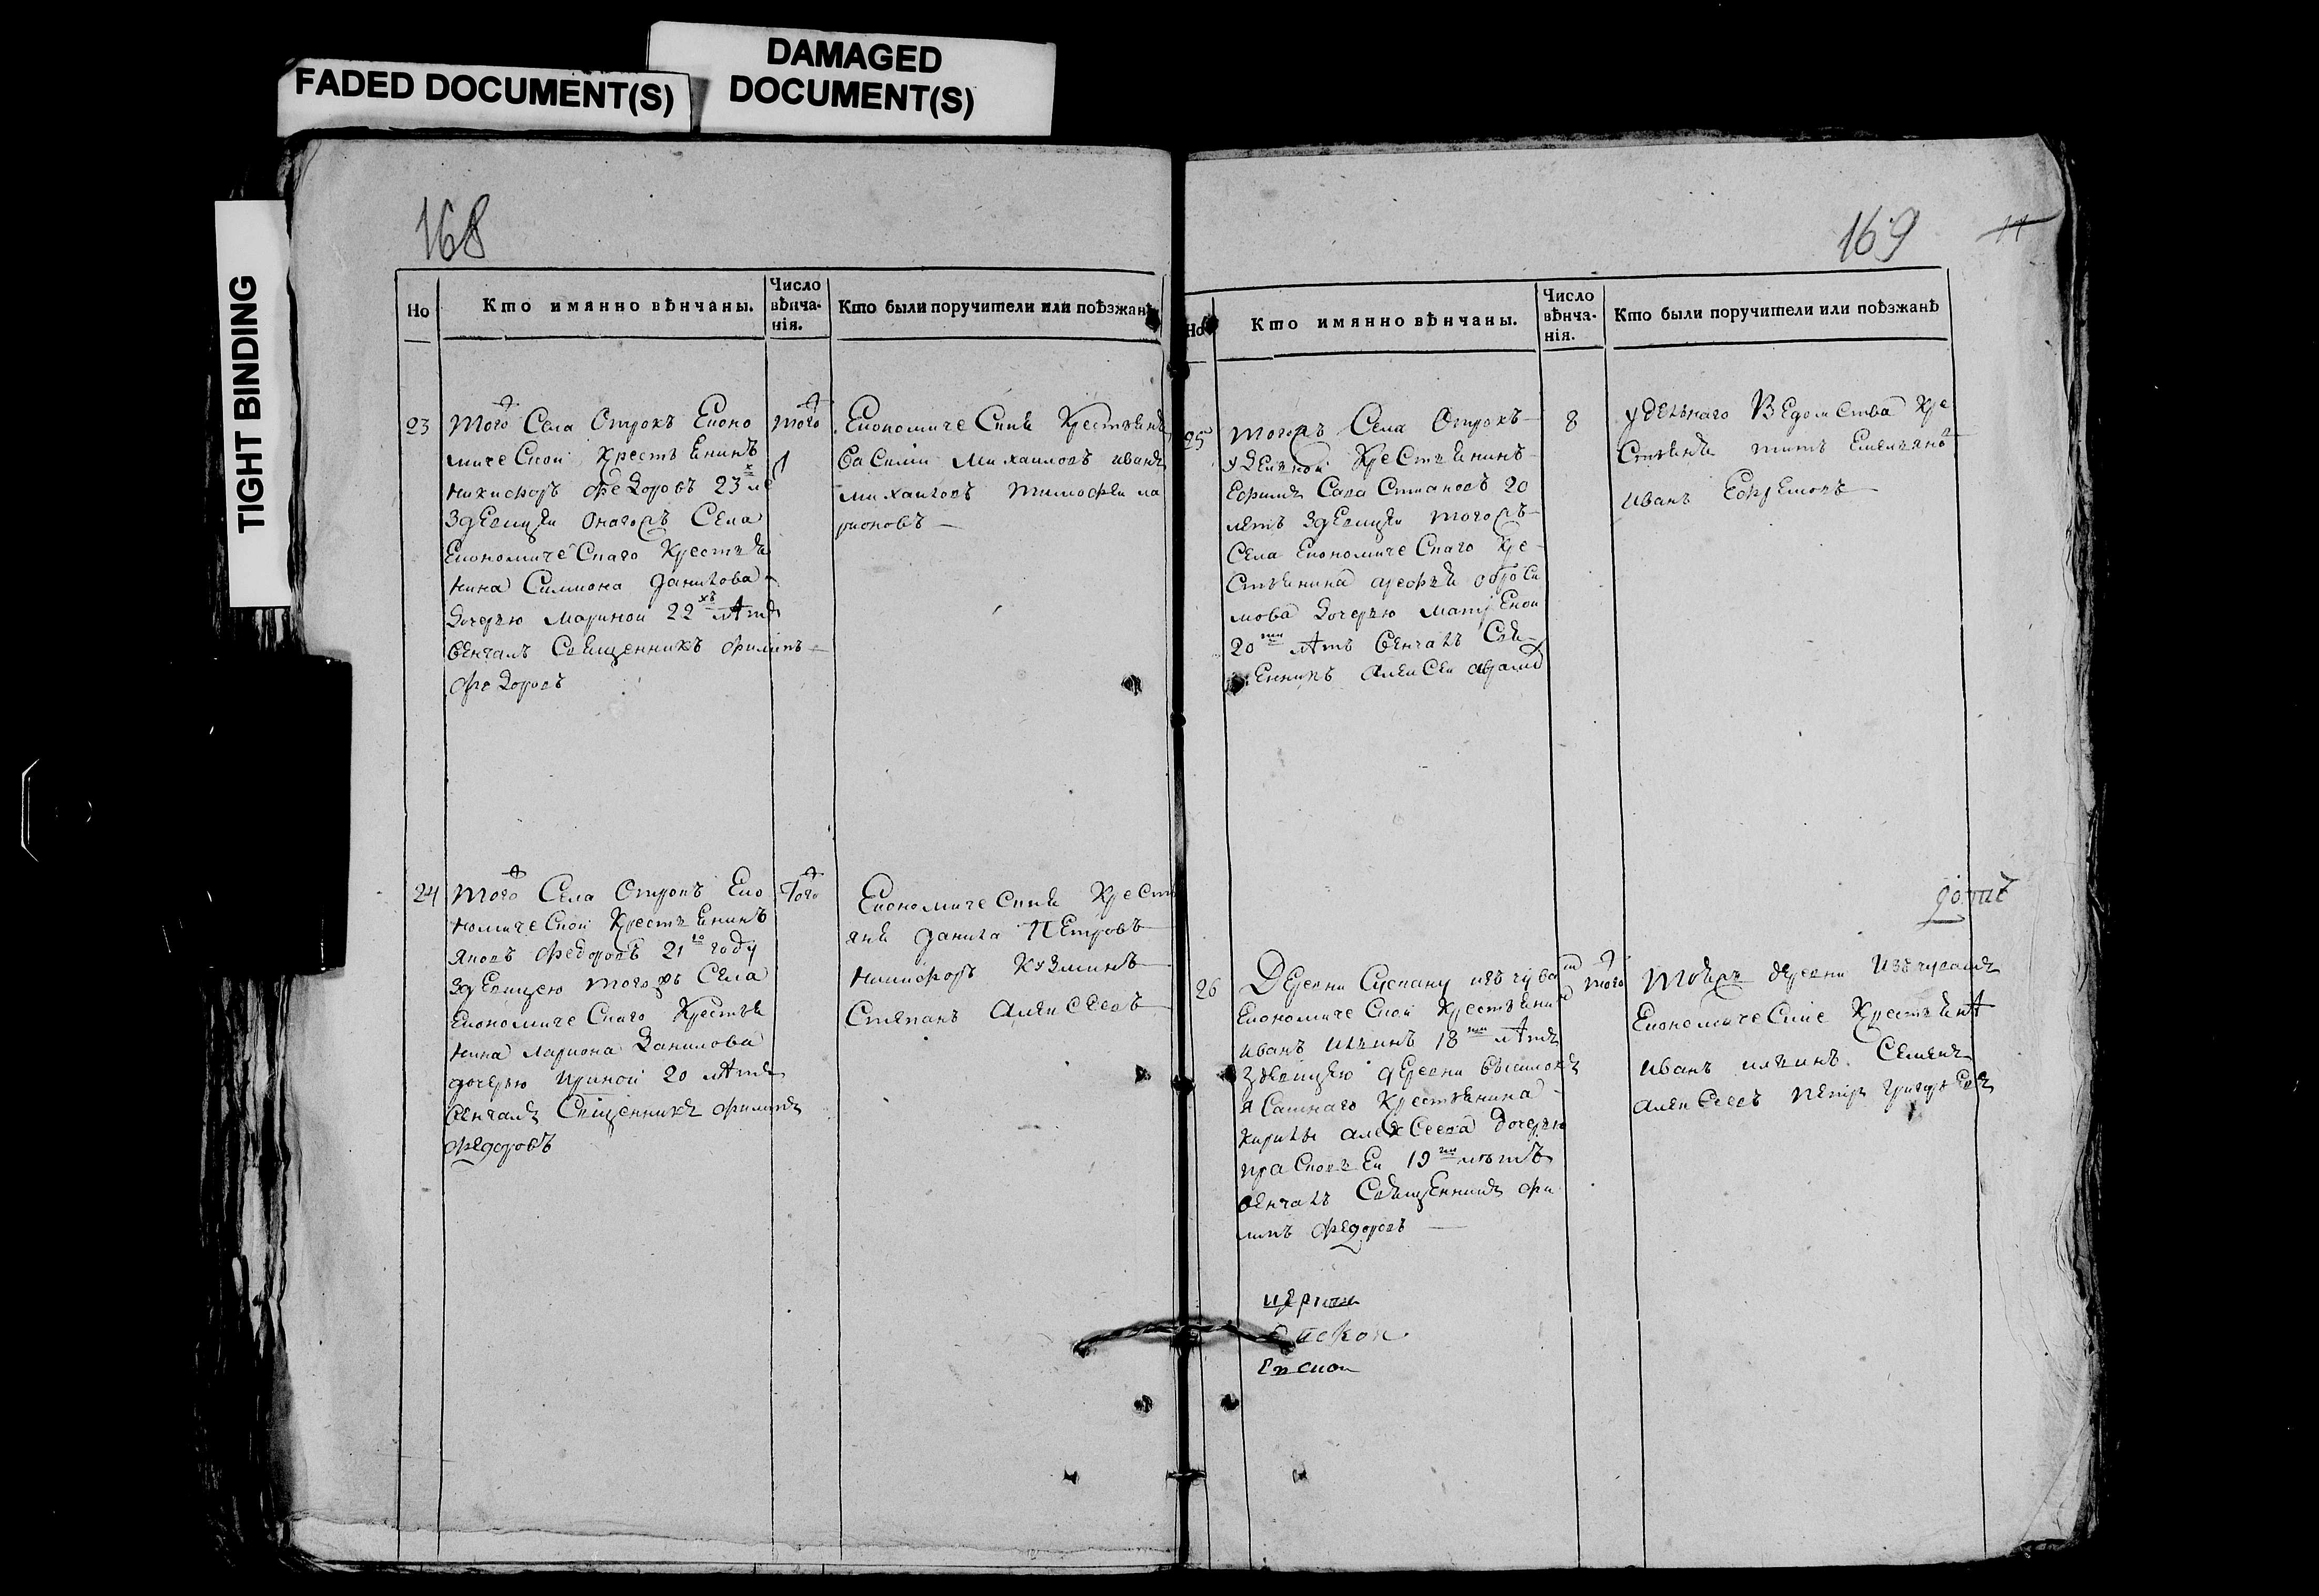 FADED DOCUMENT(S)
DAMAGED
DOCUMENT(S)
TIGHT BINDING
168
Но
Кто имянно вѣнчаны.
Число
вѣнча-
нія.
Кто были поручители или поѣзжанѣ
23
того Села Отрокъ Еконо
мическои Крестьенинъ
никифоръ федоровъ 23х ле
здевицеи Онагожъ Села
Економическаго Крестье
нина Симиона данилова
дочерью Мариной 22хъ лѣтъ
венчалъ Священникъ филипъ
федоровъ
того
Економические Крестьяне
василии михаиловъ иванъ
михаиловъ тимофеи ла
рионовъ
24
того Села Отрокъ Еко
номическои Крестьенинъ
яковъ федоровъ 21го году
здевицею тогожъ Села
Економическаго Крестье
нина лариона данилова
дочерью ириной 20 лѣтъ
венчалъ Священникъ филипъ
федоровъ
Того
Економические Крест
яне данила Петровъ
никифоръ Кузминъ
Степанъ алексеевъ
169
11
Но
Кто имянно вѣнчаны.
Число
вѣнча-
нія.
Кто были поручители или поѣзжанѣ
25
тогожъ Села Отрокъ
удельнои Крестьенинъ
Ефимъ Сава Степановъ 20
летъ здевицеи тогожъ
Села Економическаго Кре
стьенина
мова дочерью матреной
20ти лѣтъ венчалъ Свя
щенникъ алексеи
8
удельнаго Ведомства Кре
стьяне титъ Емельянъ
иванъ Ефремовъ
26
Деревни изъ чуваш
Економическои Крестьенин
иванъ ильинъ 18ти лѣтъ
здевицею деревни
ясашнаго Крестьянина
кирилы алексеева дочерью
прасковьеи 19ти лѣтъ
венчалъ Священникъ фи
липъ федоровъ
того
тоежъ деревни Изъ чувашъ
Економические Крестьянѣ
иванъ ильинъ Семенъ
алексеевъ петръ григорьевъ
церкви